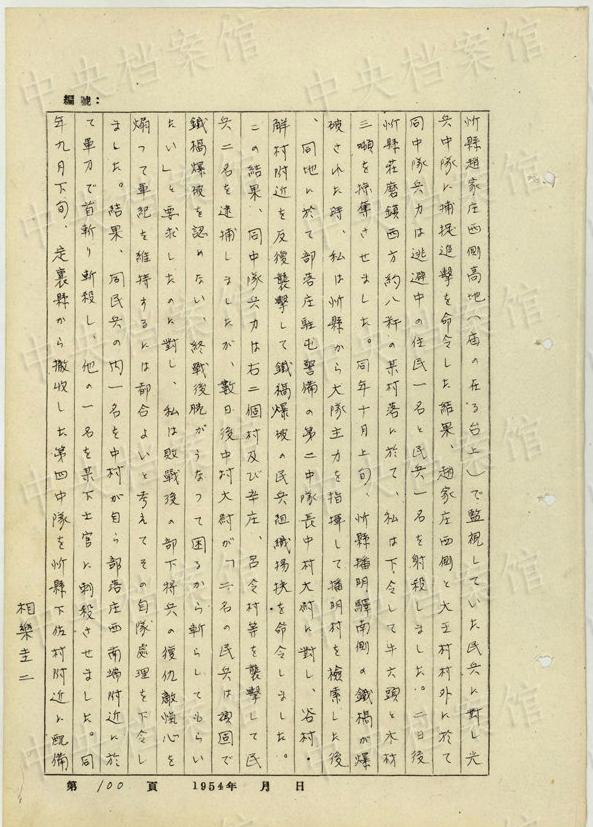 編號：
忻縣趙家庄西側高地（庙の在る台上）で監視していた民兵に対し尖
兵中隊に捕捉追撃を命令した結果、趙家庄西側と大王村村外に於て
同中隊兵力は逃避中の住民一名と民兵一名を射殺しました。二日後
忻縣荘磨鎮西方約八粁の某村落に於て、私は下令して牛六頭と木材
三噸を掠奪させました。同年十月上旬、忻縣播明驛南側の鐵橋が爆
破された時、私は忻縣から大隊主力を指揮して播明村を檢索した後
、同地に於て部落庄駐屯警備の第二中隊長中村大尉に対し、谷村・
解村附近を反復襲撃して鐵橋爆破の民兵組織掃挾を命令しました。
この結果、同中隊兵力は右二個村及び辛庄、呂令村等を襲撃して民
兵二名を逮捕しましたが、数日後中村大尉が「二名の民兵は頑固で
鐵橋爆破を認めない、終戦後腕がうなって困るから斬らしてもらい
たい」と要求したのに對し、私は敗戦後の部下将兵の復仇敵愾心を
煽って軍紀を維持するには都合よいと考えてその自隊處理を下令し
ました。結果、同民兵の内一名を中村が自ら部落庄西南端附近に於
て軍刀で首斬り斬殺し、他の一名を某下士官に刺殺させました。同
年九月下旬、定襄縣から撤収した第四中隊を忻縣下佐村附近に配備
相樂圭二
第 100 頁 1954年 月 日
中央档案馆